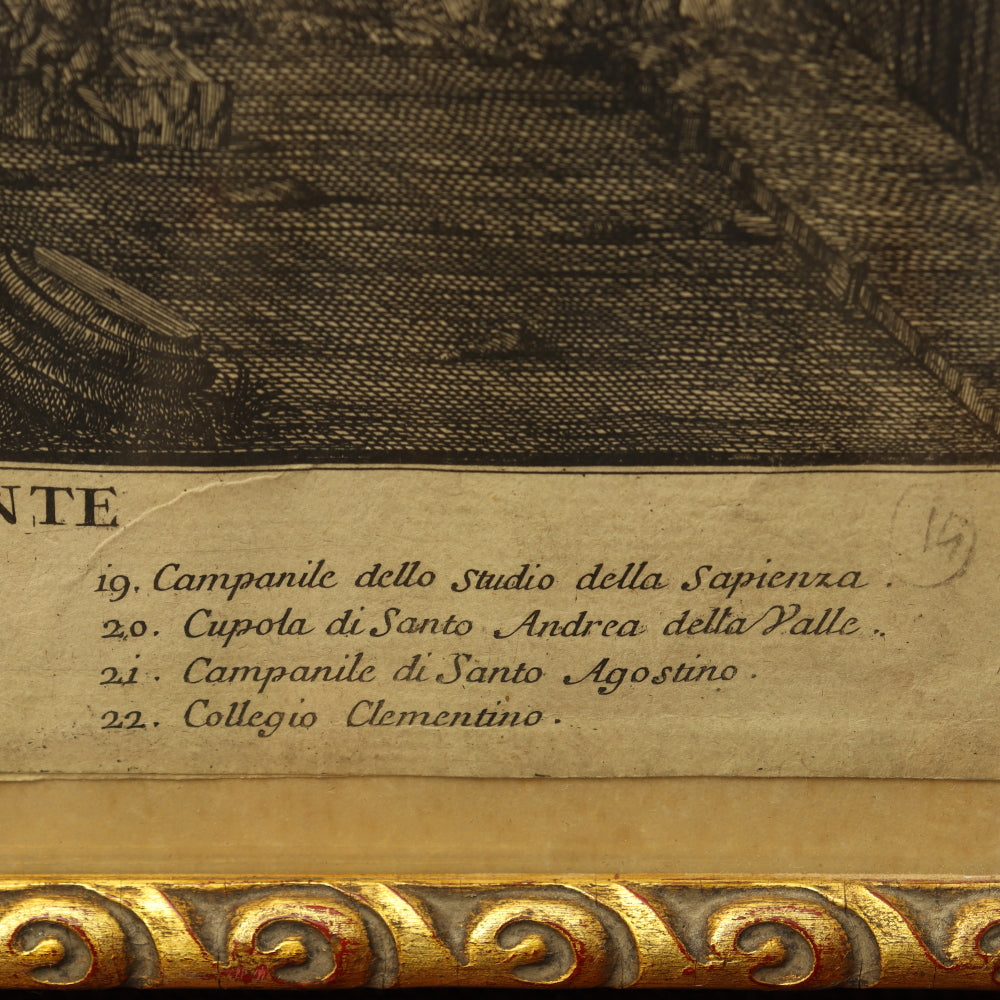 NTE
19. Campanile dello Studio della Sapienza.
20. Cupola di Santo Andrea della Valle..
21. Campanile di Santo Agostino.
22. Collegio Clementino.